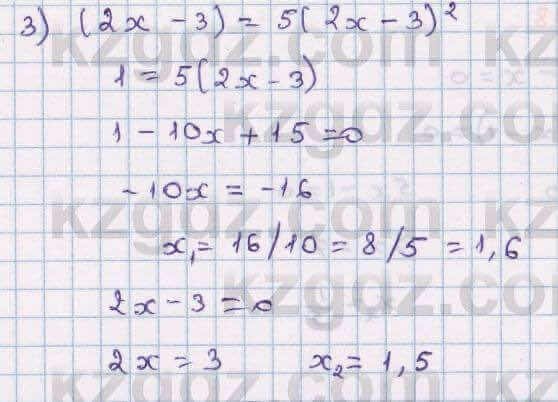 3) (2x - 3) = 5(2x - 3)²
1 = 5(2x - 3)
1 - 10x + 15 = 0
- 10x = - 16
x₁ = 16/10 = 8/5 = 1,6
2x - 3 = 0
2x = 3 x₂ = 1,5
kzgdz.com